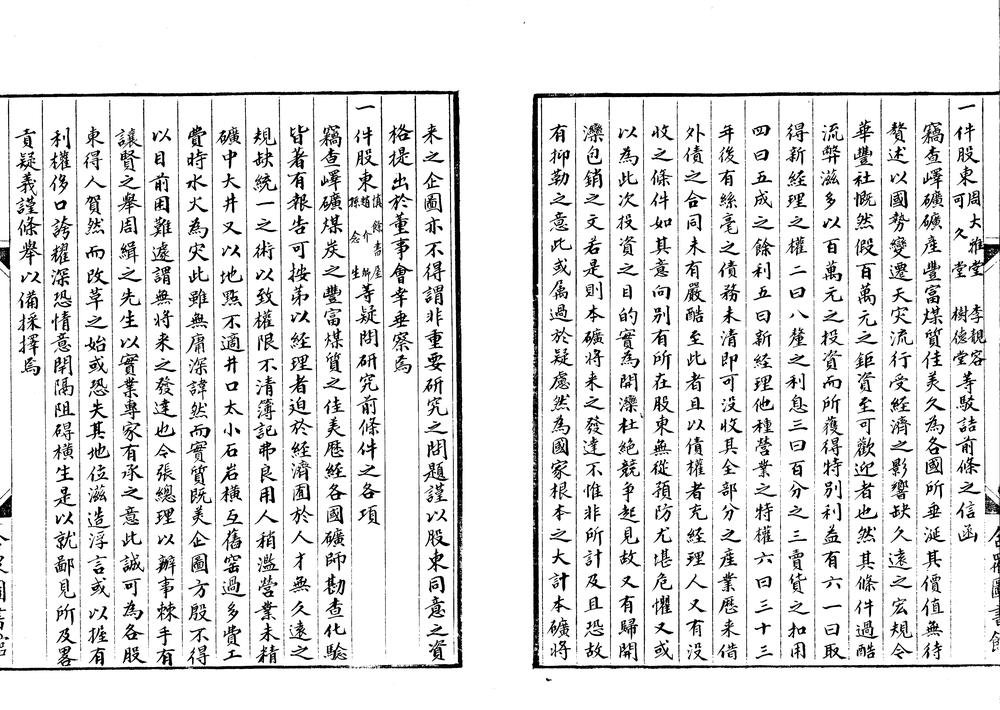 一件股東周大雅堂李親容可久堂樹德堂等駁詰前條之信函
竊查嶧礦礦產豐富煤質佳美久為各國所垂涎其價值無待
贅述以國勢變遷天灾流行受經濟之影響缺久遠之宏規今
華豐社慨然假百萬元之鉅資至可歡迎者也然其條件過酷
流弊滋多以百萬元之投資而所獲得特別利益有六一曰取
得新經理之權二曰八釐之利息三曰百分之三賣貨之扣用
四曰五成之餘利五曰新經理他種營業之特權六曰三十三
年後有絲毫之債務未清即可没收其全部分之產業歷来借
外債之合同未有嚴酷至此者且以債權者充經理人又有没
收之條件如其意向別有所在股東無從預防尤堪危懼又或
以為此次投資之目的實為開灤杜絕競争起見故又有歸開
灤包銷之文若是則本礦將来之發達不惟非所計及且恐故
有抑勒之意此或属過於疑慮然為國家根本之大計本礦將
来之企圖亦不得謂非重要研究之問題謹以股東同意之資
格提出於董事會幸垂察焉
一件股東慎餘書屋趙介師孫念生等疑問研究前條件之各項
竊查嶧礦煤炭之豐富煤質之佳美歷經各國礦師勘查化驗
皆著有報告可按苐以經理者迫於經濟囿於人才無久遠之
規缺統一之術以致權限不清簿記弗良用人稍濫營業未精
礦中大井又以地點不適井口太小石岩橫互舊窑過多費工
費時水火為灾此雖無庸深諱然而實質既美企圖方殷不得
以目前困難遽謂無將来之發達也今張總理以辦事棘手有
讓賢之舉周緝之先生以實業專家有承之意此誠可為各股
東得人賀然而改革之始或恐失其地位滋造浮言或以握有
利權侈口誇耀深恐情意閉隔阻碍橫生是以就鄙見所及畧
貢疑義謹條舉以備採擇焉